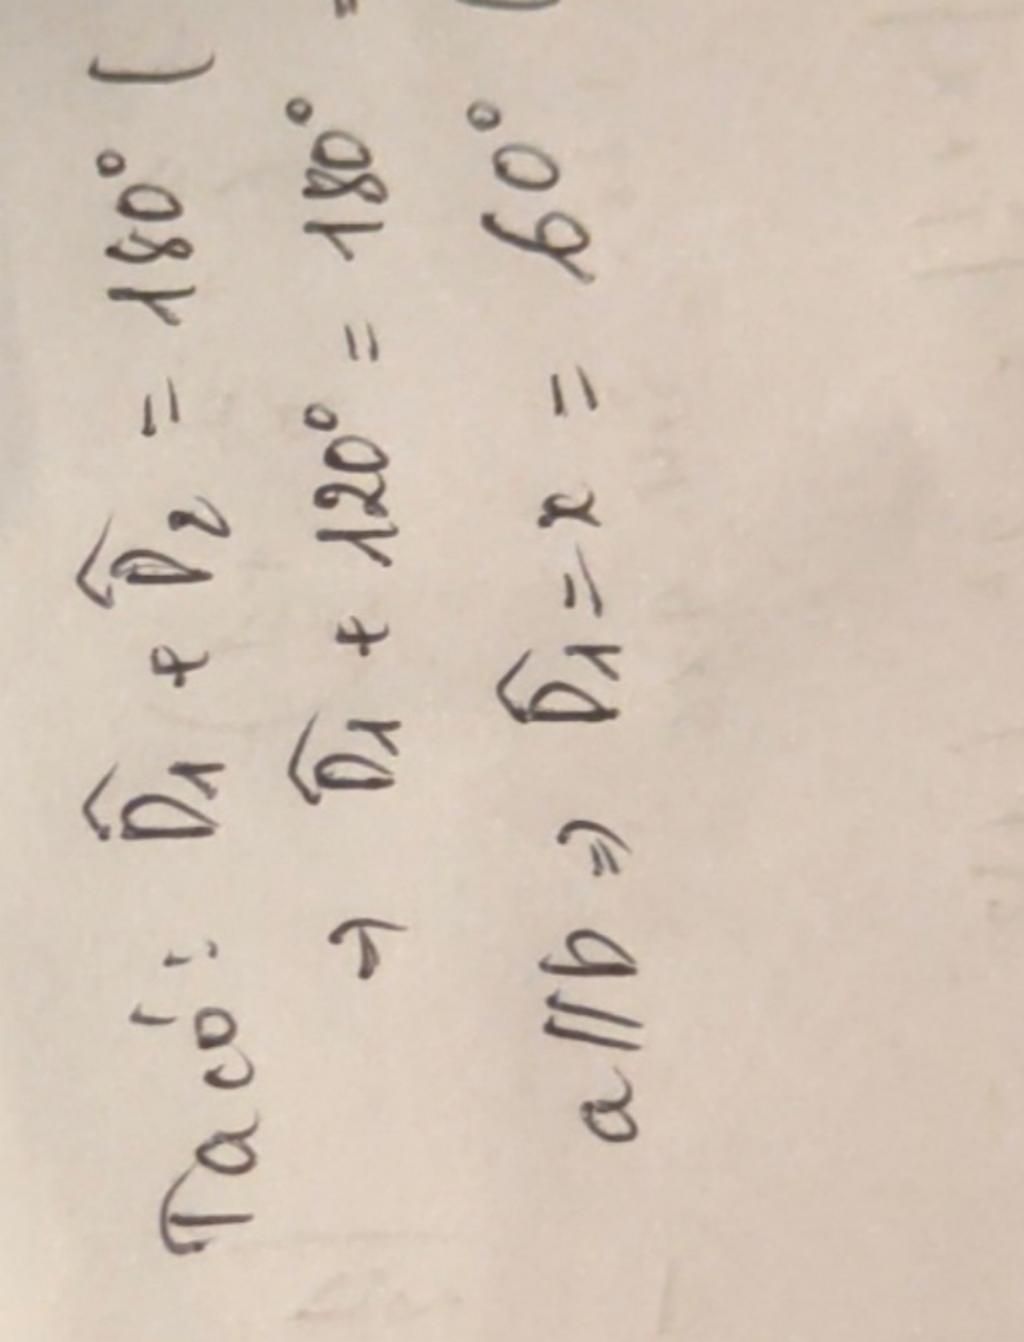 Ta có: D̂1 + D̂2 = 180° (
→ D̂1 + 120° = 180° =
a // b => D̂1 = x = 60° (